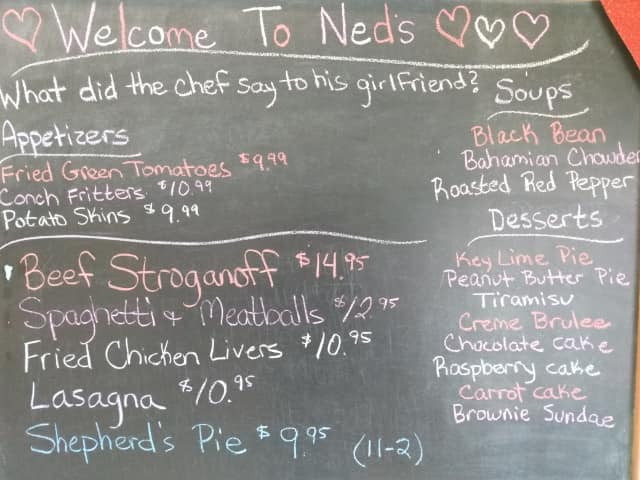 Welcome To Ned's
What did the chef say to his girlfriend?
Appetizers
Fried Green Tomatoes $9.99
Conch Fritters $10.99
Potato Skins $9.99
Beef Stroganoff $14.95
Spaghetti & Meatballs $12.95
Fried Chicken Livers $10.95
Lasagna $10.95
Shepherd's Pie $9.95 (11-2)
Soups
Black Bean
Bahamian Chowder
Roasted Red Pepper
Desserts
Key Lime Pie
Peanut Butter Pie
Tiramisu
Creme Brulee
Chocolate cake
Raspberry cake
Carrot cake
Brownie Sundae